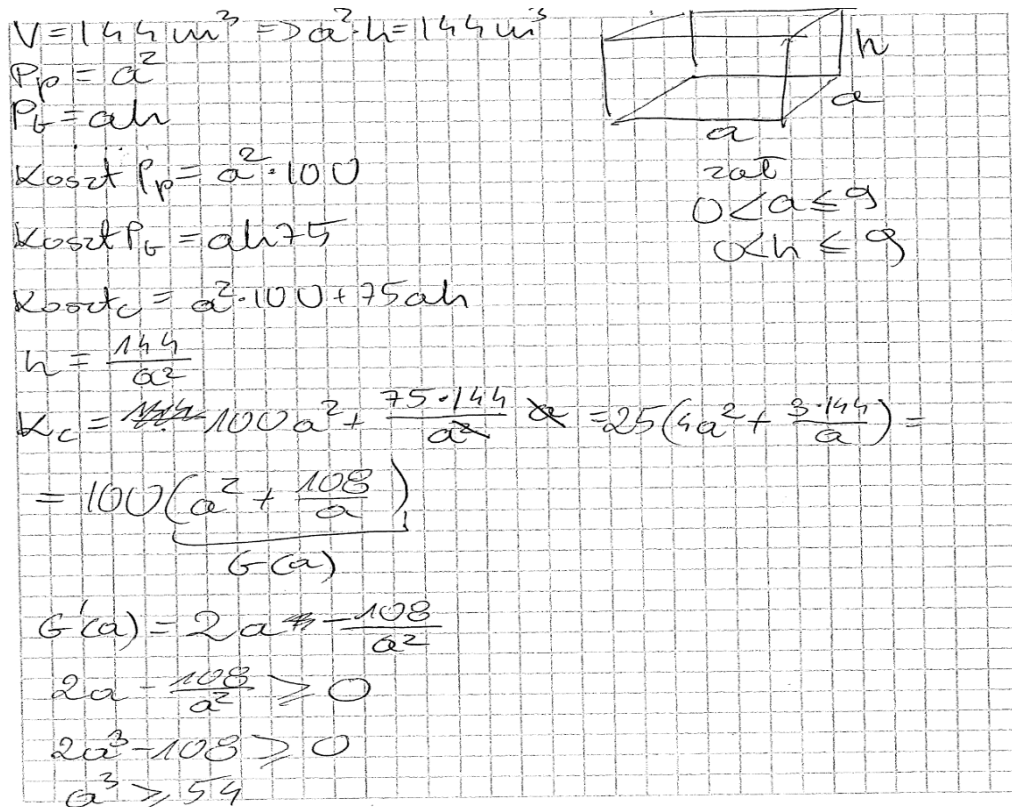 V = 144 m³ => a²·h = 144 m³
h
Pp = a²
a
Pb = ah
a
Koszt Pp = a²·100
zał
0 < a ≤ 9
Koszt Pb = ah75
0 < h ≤ 9
Kosztc = a²·100 + 75ah
h = 144/a²
Kc = 100a² + 75·144/a² a = 25(4a² + 3·144/a) =
= 100(a² + 108/a)
G(a)
G'(a) = 2a - 108/a²
2a - 108/a² ≥ 0
2a³ - 108 ≥ 0
a³ ≥ 54